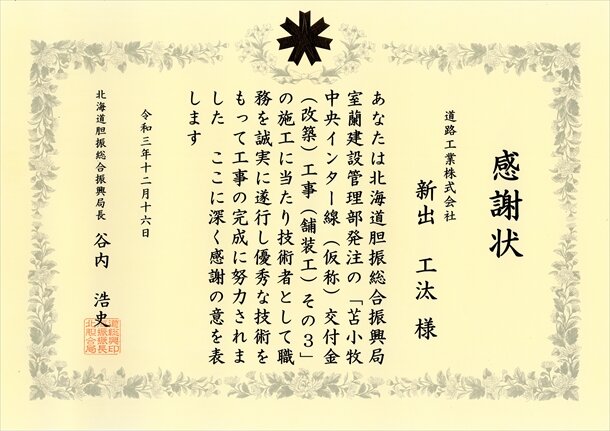 感謝状
道路工業株式会社
新出 工汰 様
あなたは北海道胆振総合振興局
室蘭建設管理部発注の「苫小牧
中央インター線(仮称)交付金
(改築)工事(舗装工)その3」
の施工に当たり技術者として職
務を誠実に遂行し優秀な技術を
もって工事の完成に努力されま
した ここに深く感謝の意を表
します
令和三年十二月十六日
北海道胆振総合振興局長 谷内 浩史